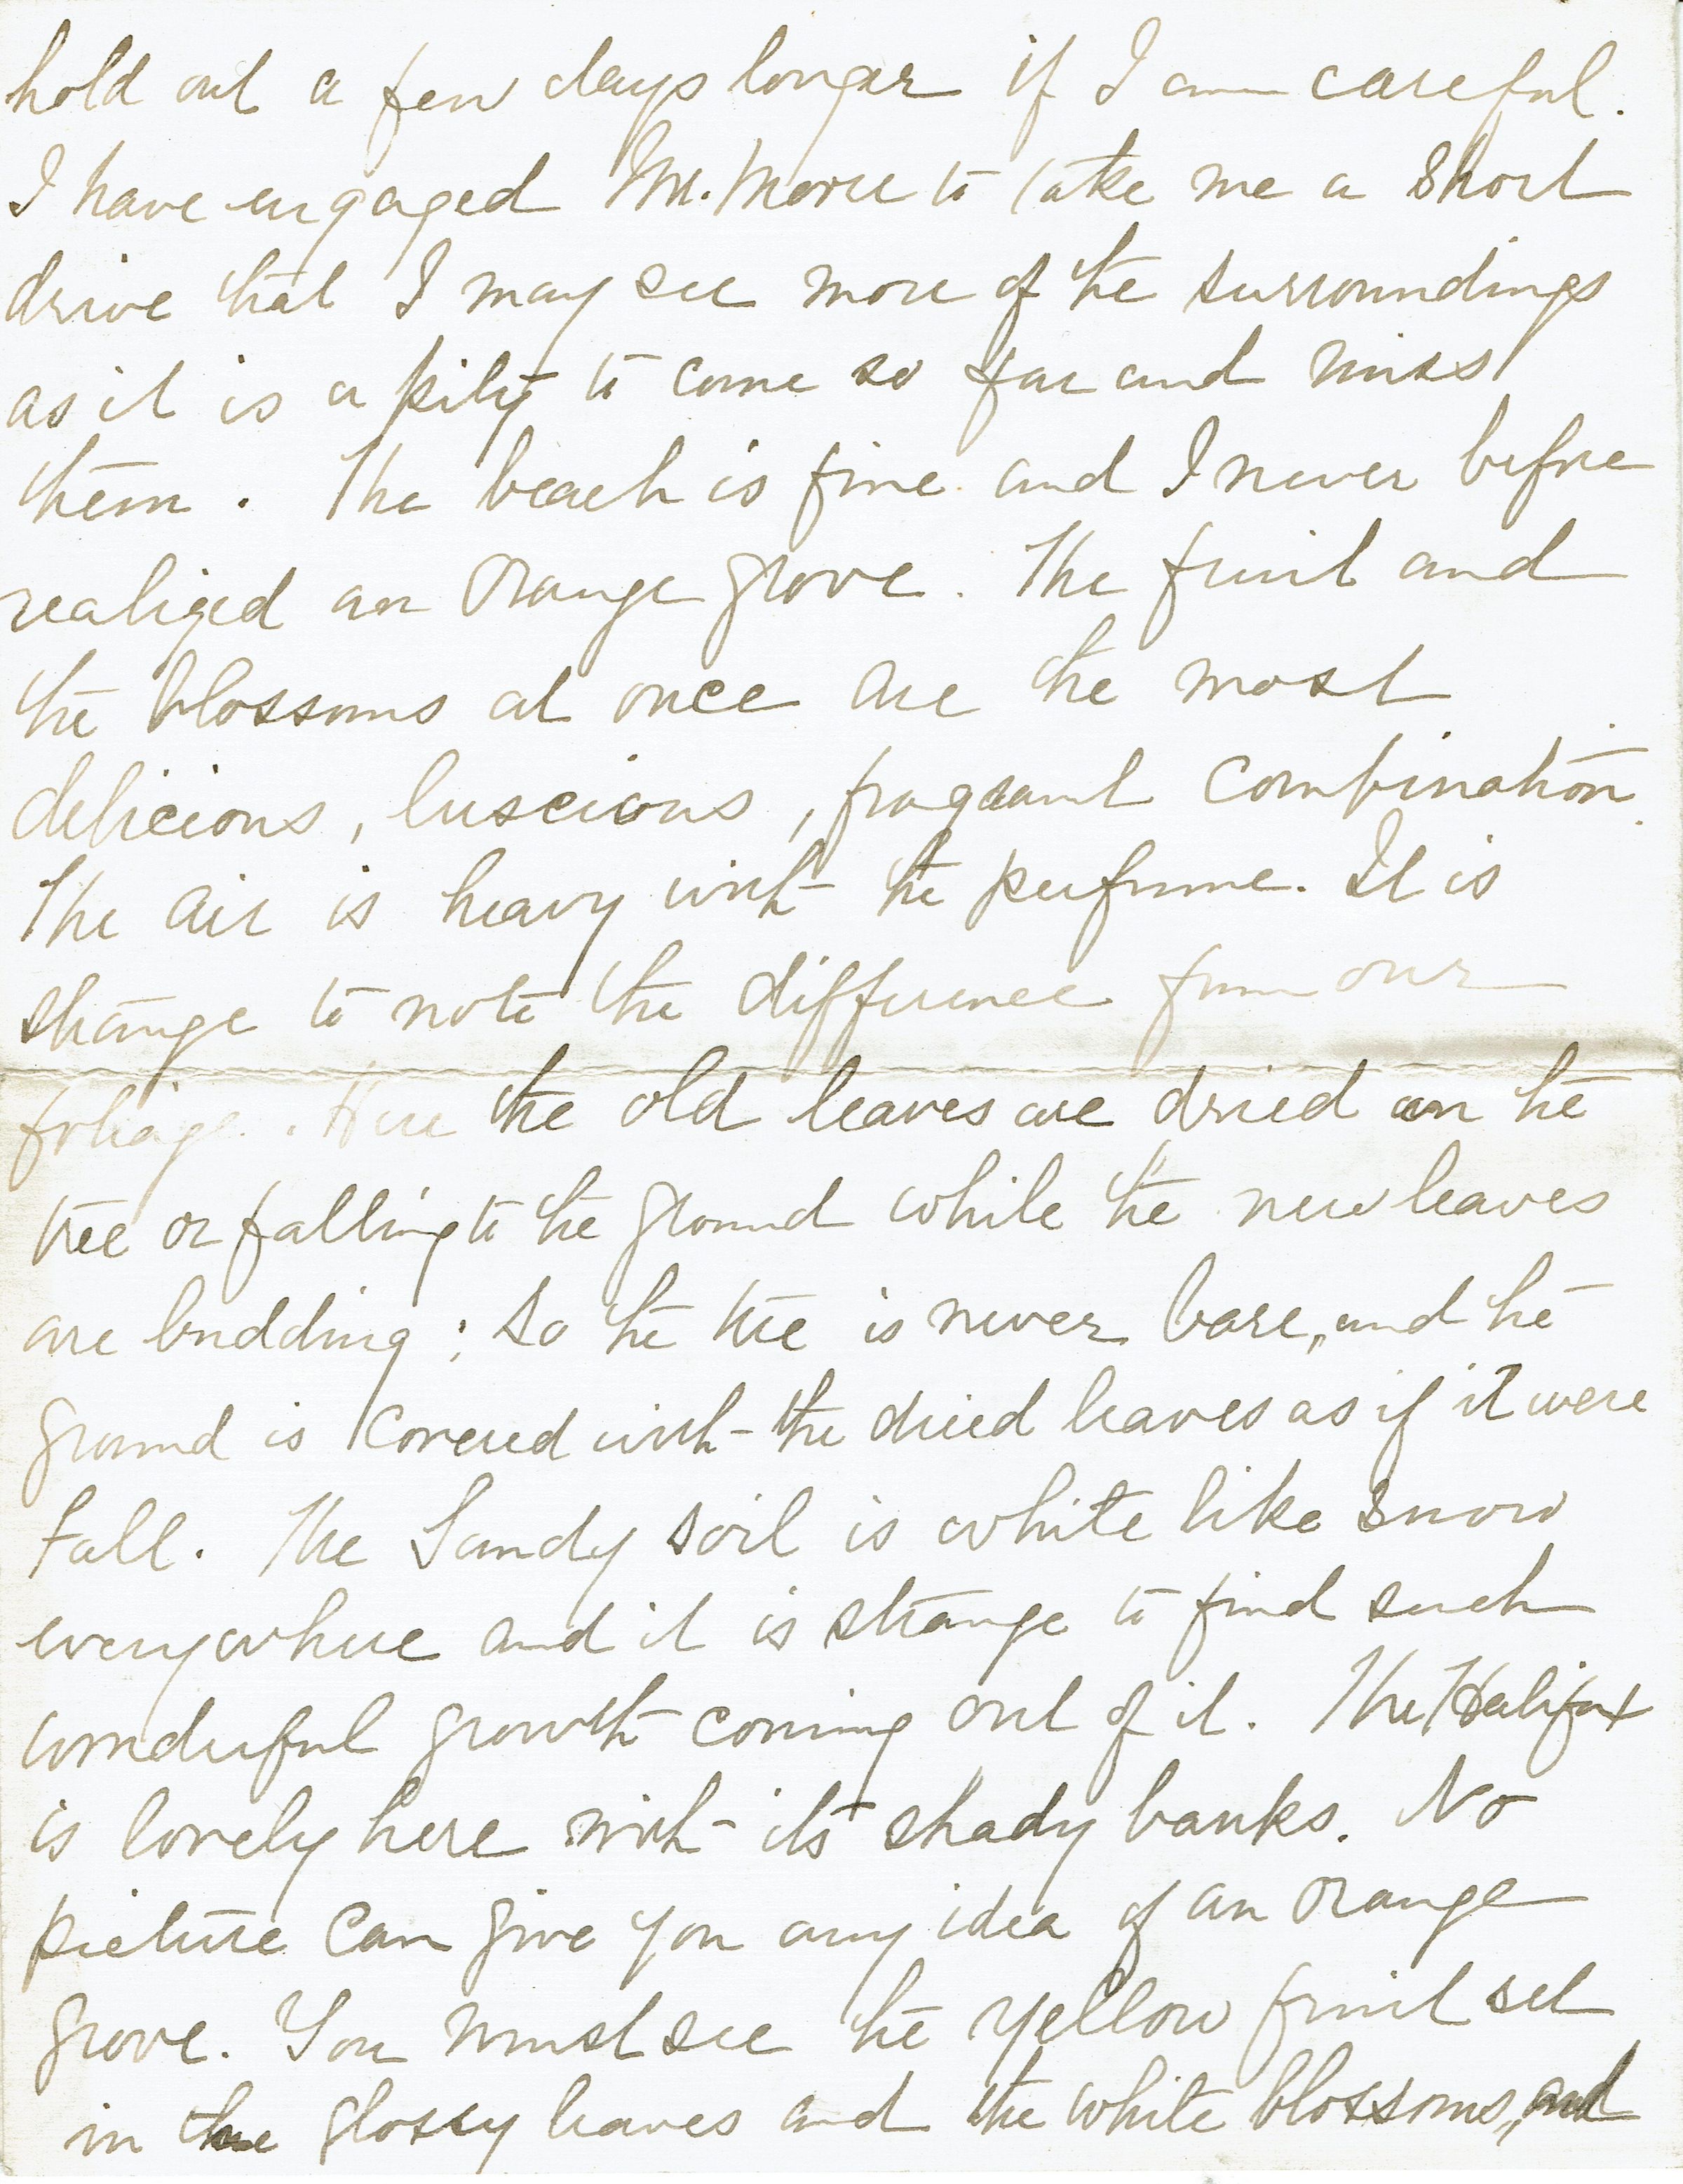 hold out a few days longer if I am careful.
I have engaged Mr. to take me a short
drive that I may see more of the surroundings
as it is a pity to come so far and miss
them. The beach is fine and I never before
realized an Orange grove. The fruit and
the blossoms at once are the most
delicious, luscious, fragrant combination.
The air is heavy with the perfume. It is
strange to note the difference from our
foliage. Here the old leaves are dried on the
tree or falling to the ground while the new leaves
are budding; so the tree is never bare, and the
ground is covered with the dried leaves as if it were
fall. The Sandy soil is white like snow
everywhere and it is strange to find such
wonderful growth coming out of it. The Halifax
is lovely here with its shady banks. No
picture can give you any idea of an orange
grove. You must see the yellow fruit set
in the glossy leaves and the white blossoms, and